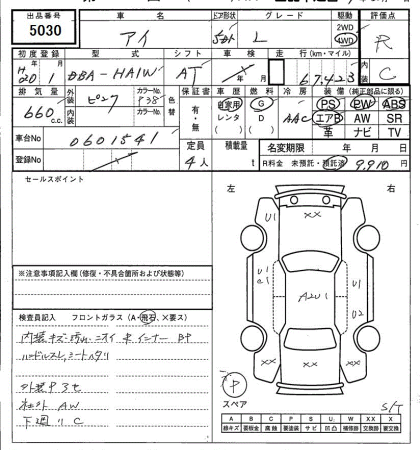 出品番号 車名 ドア形状 グレード 駆動 評価点
5030 アイ 5ドア L 2WD 4WD R
初度登録 型式 シフト 車検 走行(km・マイル) 内装 C
H20 1 DBA-HA1W AT 67,423
排気量 外装 カラーNo. 色替 保証書 車歴 燃料 冷房 装備(純正創品に限る)
660 c.c. ピンク P38 有・無 自家用 レンタ G D AAC PS PW ABS
エアB AW SR
革 ナビ TV
車台No 0601541
定員 積載量 名変期限 年 月 日
登録No 4人 t R料金 未預託・預託済 9,910 円
セールスポイント
左 右
※注意事項記入欄(修復・不具合箇所および状態等)
検査員記入 フロントガラス(A・飛石、×要ス)
内装キズ・汚れ・ニオイ
ハンドルスレ,シートヘタリ
外装 中 3セ
社外 AW
下廻りC
XX
U1
U1
A2U1
U1
U2
XX
P
スペア
S/T
A B C P S U W X XX
線キズ 要板金 腐蝕 要塗装 サビ 凹凸 補修跡 交換跡 要交換